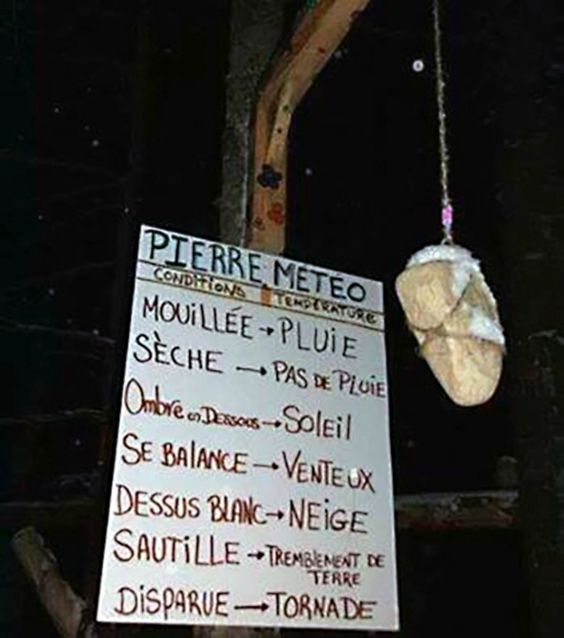 PIERRE MÉTÉO
CONDITIONS TEMPÉRATURE
MOUILLÉE → PLUIE
SÈCHE → PAS DE PLUIE
Ombre en Dessous → SOLEIL
SE BALANCE → VENTEUX
DESSUS BLANC → NEIGE
SAUTILLE → TREMBLEMENT DE
TERRE
DISPARUE → TORNADE